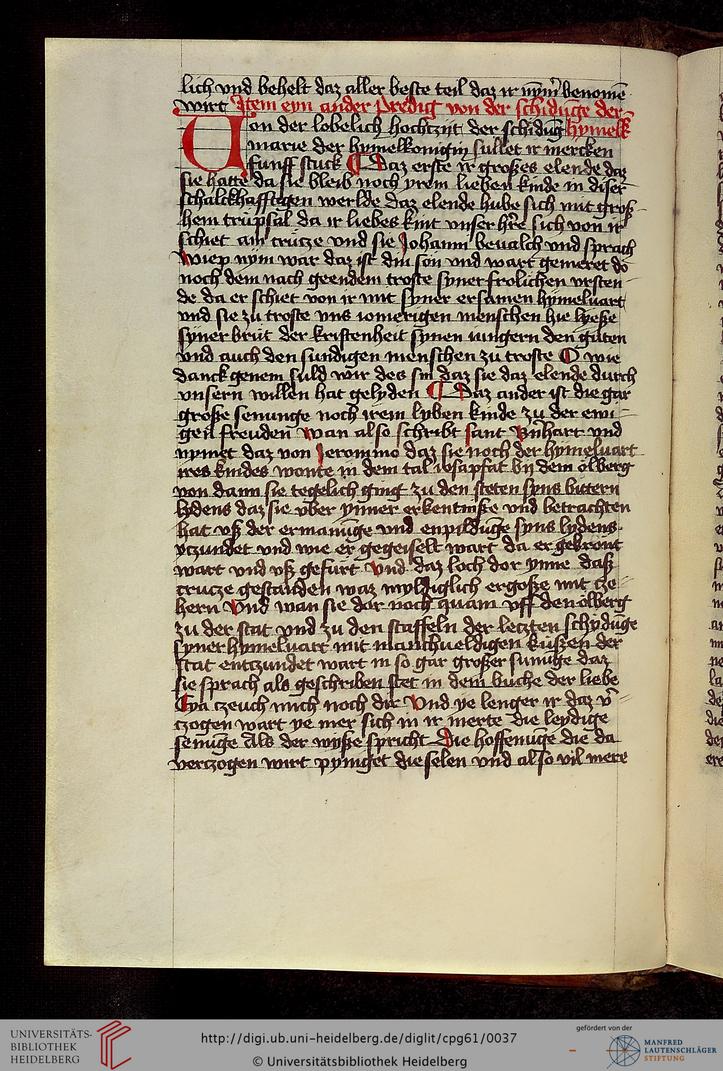 lich vnd behelt daz aller beste teil daz ir nym̄ benomē
wirt Item eyn ander predig von der schidūge der
Von der lobelich hochtzijt der schidūg hymelk
marie der hymelkonigin sullet ir mercken
funff stuck Daz erste ir großes elende daz
sie hatte da sie bleib noch yrem lieben kinde in diser
schalckhafftigen werlde daz elende hube sich mit groß
hem trüpsal da ir liebes kint vnser hre sich von ir
schiet am crutze vnd sie Johanni beualch vnd sprach
wiep nym war daz ist din son vnd wart gemeret do
noch dem nach geendem troste syner frolichen vrsten
de da er schiet von ir mit syner ersamen hymeluart
vnd sie zu troste vns iomerigen menschen hie lyeße
syner brut der kristenheit synen iungern den guten
vnd auch den sundigen menschen zu troste wie
danck genem suld wir des sin daz sie daz elende durch
vnsern willen hat gelyden Daz ander ist die gar
große senunge noch irem lyben kinde zu der ewi
gen freuden wan also schribt sant bn̄hart vnd
nymet daz von Jeronimo daz sie noch der hymeluart
ires kindes wonte in dem tal iosapfat bij dem olberg
von dann sie tegelich ging zu den steten syns bittern
lydens daz sie vber ynner erkentniße vnd betrachten
hat vß der ermanūge vnd enpildūge syns lydens
ytzundet vnd wie er gegeiselt wart da er gekront
wart vnd vß gefurt vnd daz loch dor ynne daß
crutze gestanden waz myldiglich ergoße mit tze
hern vnd wan sie dar nach quam vff den olberg
zu der stat vnd zu den staffeln der letzten schydūge
syner hymeluart mit manchueldigen kußen der
stat entzundet wart in so gar großer sunūge daz
sie sprach als geschriben stet in dem buche der liebe
Eya czeuch mich noch dir vnd ye lenger ir daz v̄
tzogen wart ye mer sich in ir merte die leydige
senūge Als der wyße spricht Die hoffenūge die da
vertzogen wirt pyniget die selen vnd also vil mere
UNIVERSITÄTS-
BIBLIOTHEK
HEIDELBERG
http://digi.ub.uni-heidelberg.de/diglit/cpg61/0037
© Universitätsbibliothek Heidelberg
gefördert von der
MANFRED
LAUTENSCHLÄGER
STIFTUNG